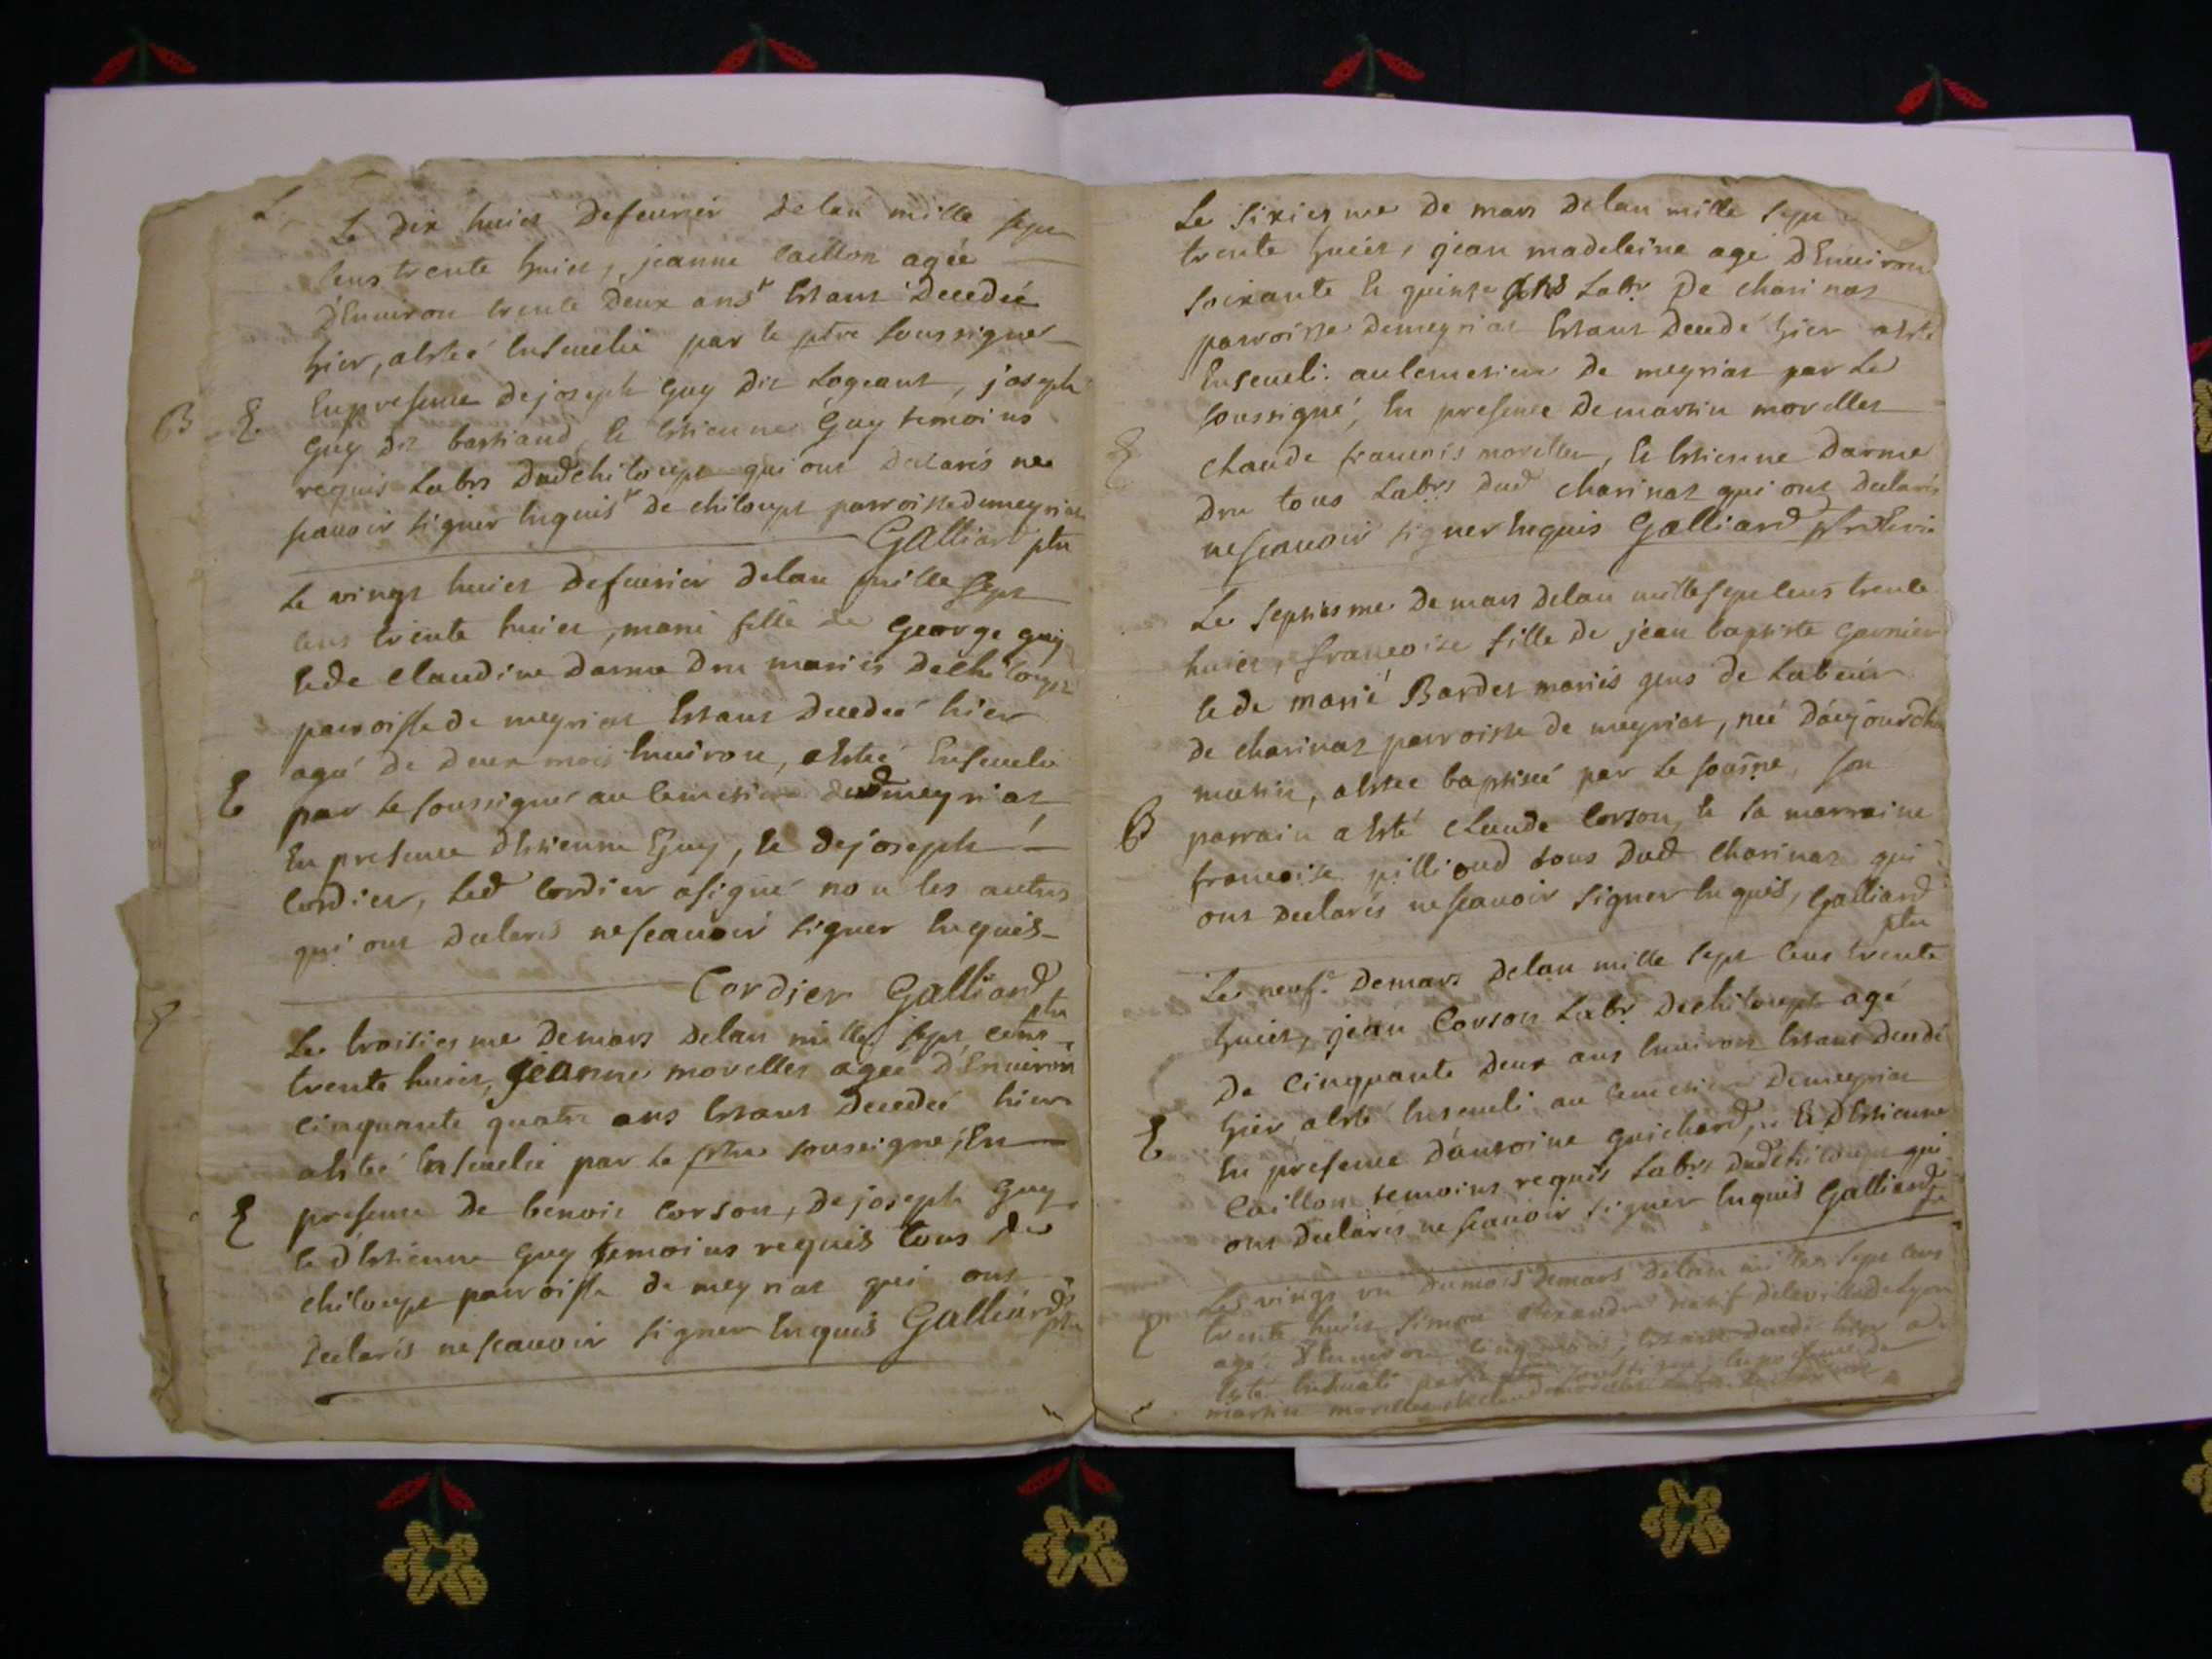 Le dix huict defeurier delan mille sept
cens trente huict, jeanne caillon agée
d'Enuiron trente deux ans Estant decedée
hier, a estée Enseuelie par le ptre soussigné
Enpresence dejoseph Guy dit Logeant, joseph
B E
Guy dit bastiand, et Estienne Guy temoins
requis Labrs dud chiloupt qui ont declarés ne
scauoir signer Enquis de chiloupt parroisse demeyriat
Galliard ptre
Le vingt huict defeurier delan mille sept
cens trente huict, marie fille de George guy
et de Claudine darme dru mariés de chiloupt
parroisse de meyriat Estant decedée hier
agée de deux mois Enuiron, a Estée Enseuelie
E
par le soussigné au cemetiere dud meyriat
En presence d'Estienne Guy, et dejoseph
Cordier, led Cordier a signé non les autres
qui ont declarés ne scauoir signer Enquis
Cordier Galliard ptre
Le troisiesme demars delan mille sept cens
trente huict, jeanne morellet agée d'Enuiron
cinquante quatre ans Estant decedée hier
a estée Enseuelie par le ptre soussigné, En
E
presence de benoit corson, dejoseph Guy
et d'Estienne Guy temoins requis tous de
chiloupt parroisse de meyriat qui ont
declarés ne scauoir signer Enquis Galliard ptre
Le sixiesme de mars delan mille sept
trente huict, jean madeleine agé d'Enuiron
soixante et quinze ans Labr de charinas
parroisse demeyriat Estant decedé hier a esté
Enseueli au cemetiere de meyriat par le
soussigné, En presence demartin morellet
E
claude francois morellet, et Estienne darme
dru tous Labrs dud charinas qui ont declarés
ne scauoir signer Enquis Galliard ptre
Le septiesme de mars delan mille sept cens trente
huict, francoise fille de jean baptiste garnier
et de marie Bardet mariés gens de Labeur
de charinas parroisse de meyriat, née d'aujourdhuy
matin, a estée baptisée par le sousne, son
B
parrain a Esté claude Corson, et sa marraine
francoise pillioud tous dud charinas qui
ont declarés ne scauoir signer Enquis, Galliard
ptre
Le neuf.e demars delan mille sept cens trente
huict, jean Corson Labr dechiloupt agé
de cinquante deux ans Enuiron Estant decedé
hier, a Esté Enseueli au cemetiere demeyriat
E
En presence d'antoine guichard, Et d'Estienne
Caillon temoins requis Labrs dud chiloupt qui
ont declarés ne scauoir signer Enquis Galliard ptre
Le vingt un dumois demars delan mille sept cens
trente huict simon alexandre natif delaville de Lyon
agé d'Enuiron cinq mois, Estant decedé hier a
Esté Enseueli par le ptre soussigné, En presence de
martin morellet